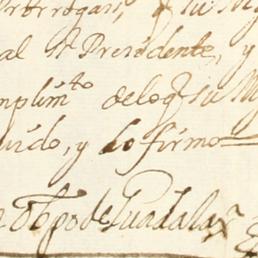 Prorrogasi, y su Mg
al Sr Presidente, y
mplimto deloq su Mg
uido, y lo firmo
Obpo de Guadalaxa